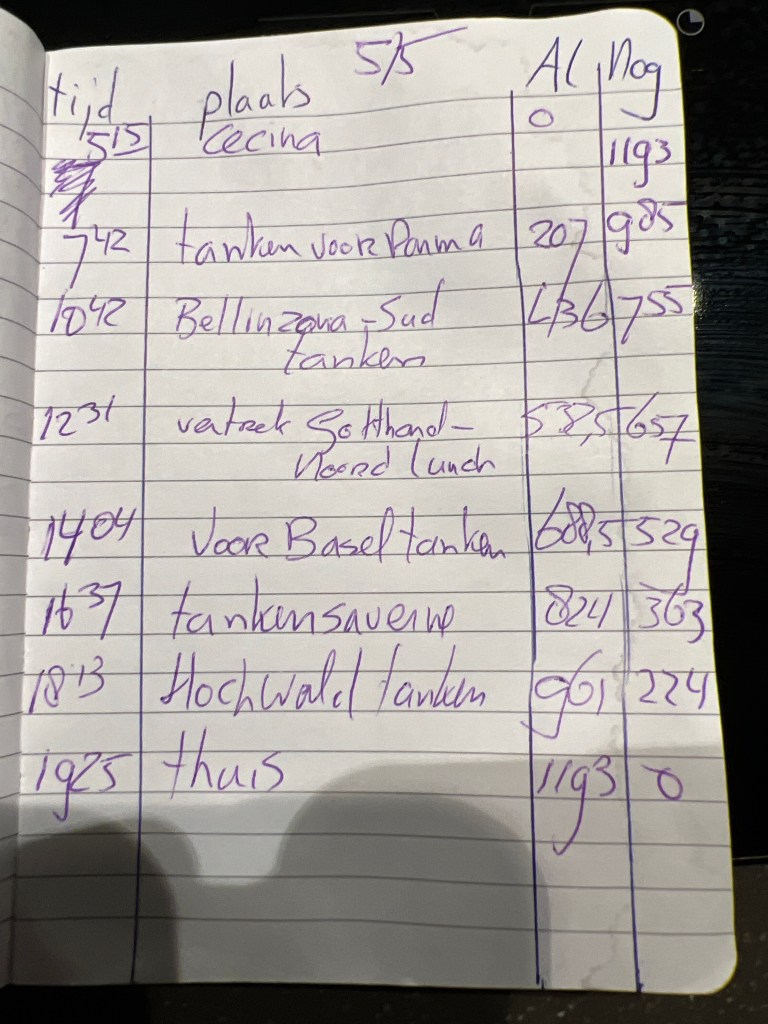 5/5
tijd plaats Al Nog
5¹⁵ Cecina 0
1193
7⁴² tanken voor Parma 207 985
10⁴² Bellinzona-Sud 436 755
tanken
12³¹ vertrek Gotthard- 538,5 657
Noord lunch
14⁰⁴ Voor Basel tanken 688,5 529
16³⁷ tanken saverne 824 363
18¹³ Hochwald tanken 961 224
19²⁵ thuis 1193 0